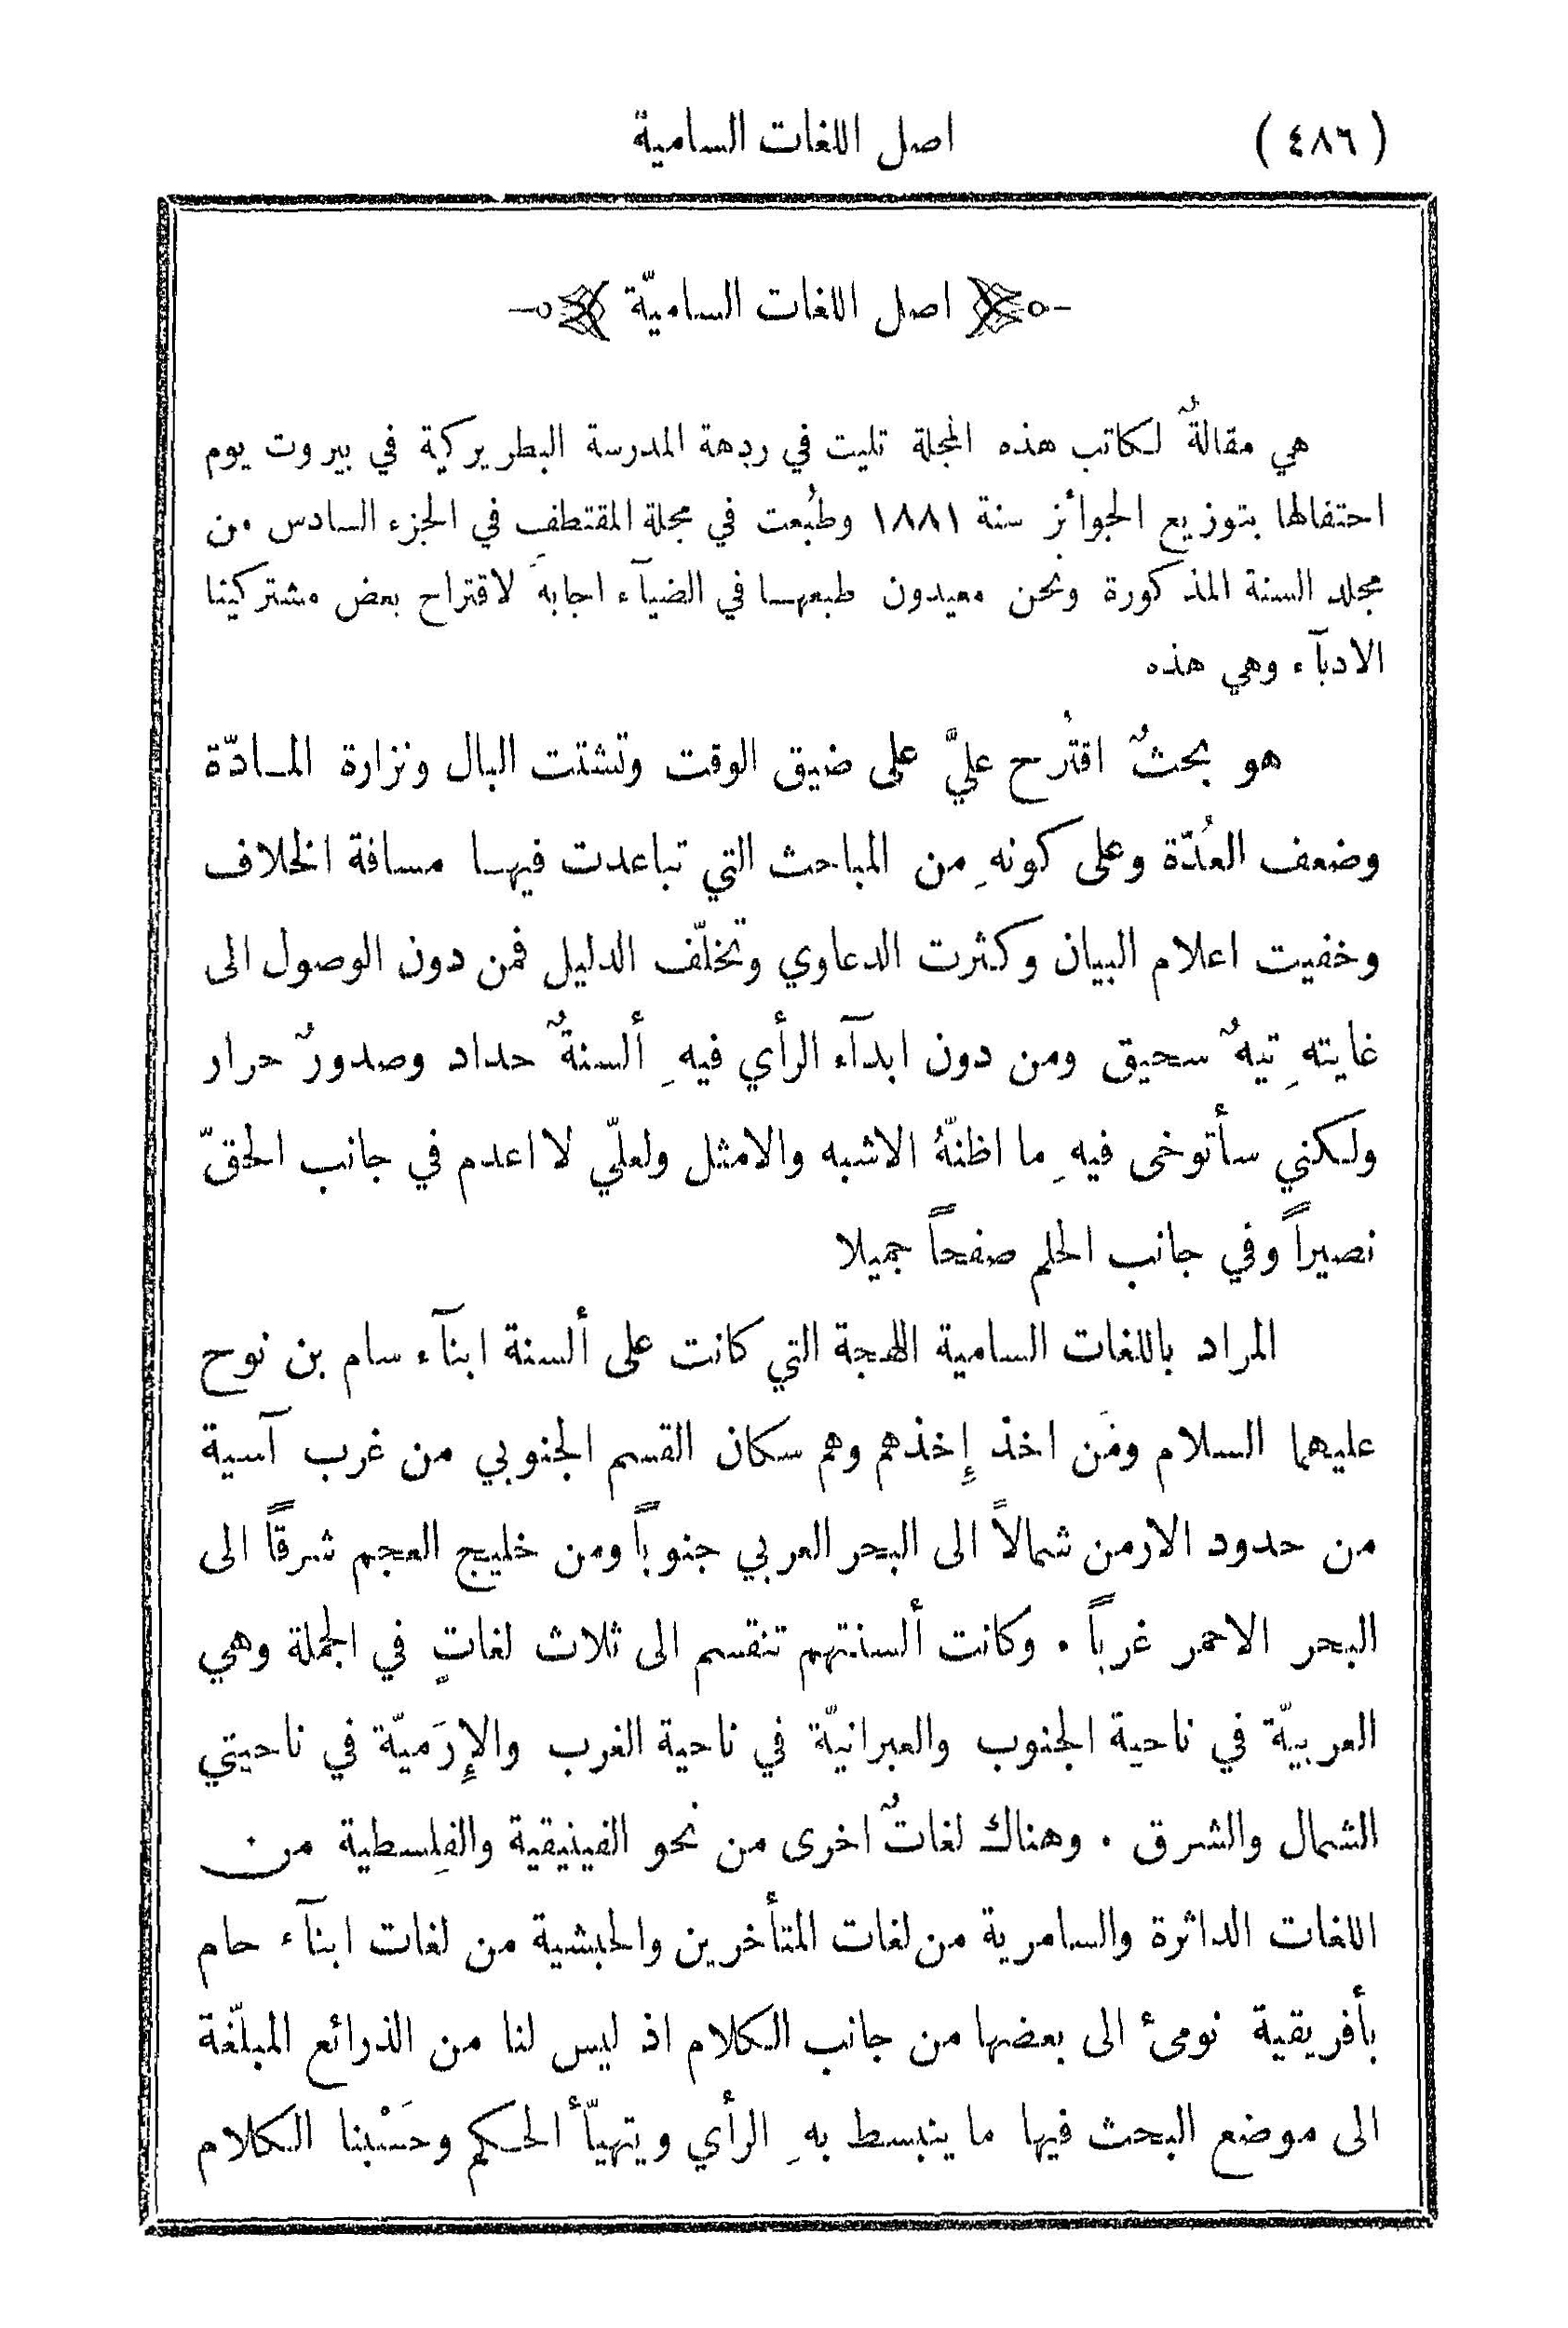 (٤٨٦) اصل اللغات السامية
اصل اللغات الساميّة
هي مقالةٌ لكاتب هذه المجلة تليت في ردهة المدرسة البطريركية في بيروت يوم
احتفالها بتوزيع الجوائز سنة ١٨٨١ وطُبعت في مجلة المقتطف في الجزء السادس من
مجلد السنة المذكورة ونحن معيدون طبعها في الضيآء اجابةً لاقتراح بعض مشتركينا
الادبآء وهي هذه
هو بحثٌ اقتُرح عليَّ على ضيق الوقت وتشتت البال ونزارة المادّة
وضعف العُدّة وعلى كونهِ من المباحث التي تباعدت فيها مسافة الخلاف
وخفيت اعلام البيان وكثرت الدعاوي وتخلّف الدليل فمن دون الوصول الى
غايتهِ تيهٌ سحيق ومن دون ابدآء الرأي فيهِ ألسنةٌ حداد وصدورٌ حرار
ولكني سأتوخى فيهِ ما اظنّهُ الاشبه والامثل ولعلّي لا اعدم في جانب الحقّ
نصيراً وفي جانب الحلم صفحاً جميلا
المراد باللغات السامية اللهجة التي كانت على ألسنة ابنآء سام بن نوح
عليهما السلام ومَن اخذ إخذهم وهم سكان القسم الجنوبي من غرب آسية
من حدود الارمن شمالاً الى البحر العربي جنوباً ومن خليج العجم شرقاً الى
البحر الاحمر غرباً . وكانت ألسنتهم تنقسم الى ثلاث لغاتٍ في الجملة وهي
العربيّة في ناحية الجنوب والعبرانيّة في ناحية الغرب والإرَميّة في ناحيتي
الشمال والشرق . وهناك لغاتٌ اخرى من نحو الفينيقية والفِلسطية من
اللغات الداثرة والسامرية من لغات المتأخرين والحبشية من لغات ابنآء حام
بأفريقية نومئ الى بعضها من جانب الكلام اذ ليس لنا من الذرائع المبلّغة
الى موضع البحث فيها ما ينبسط بهِ الرأي ويتهيّأ الحكم وحَسْبنا الكلام